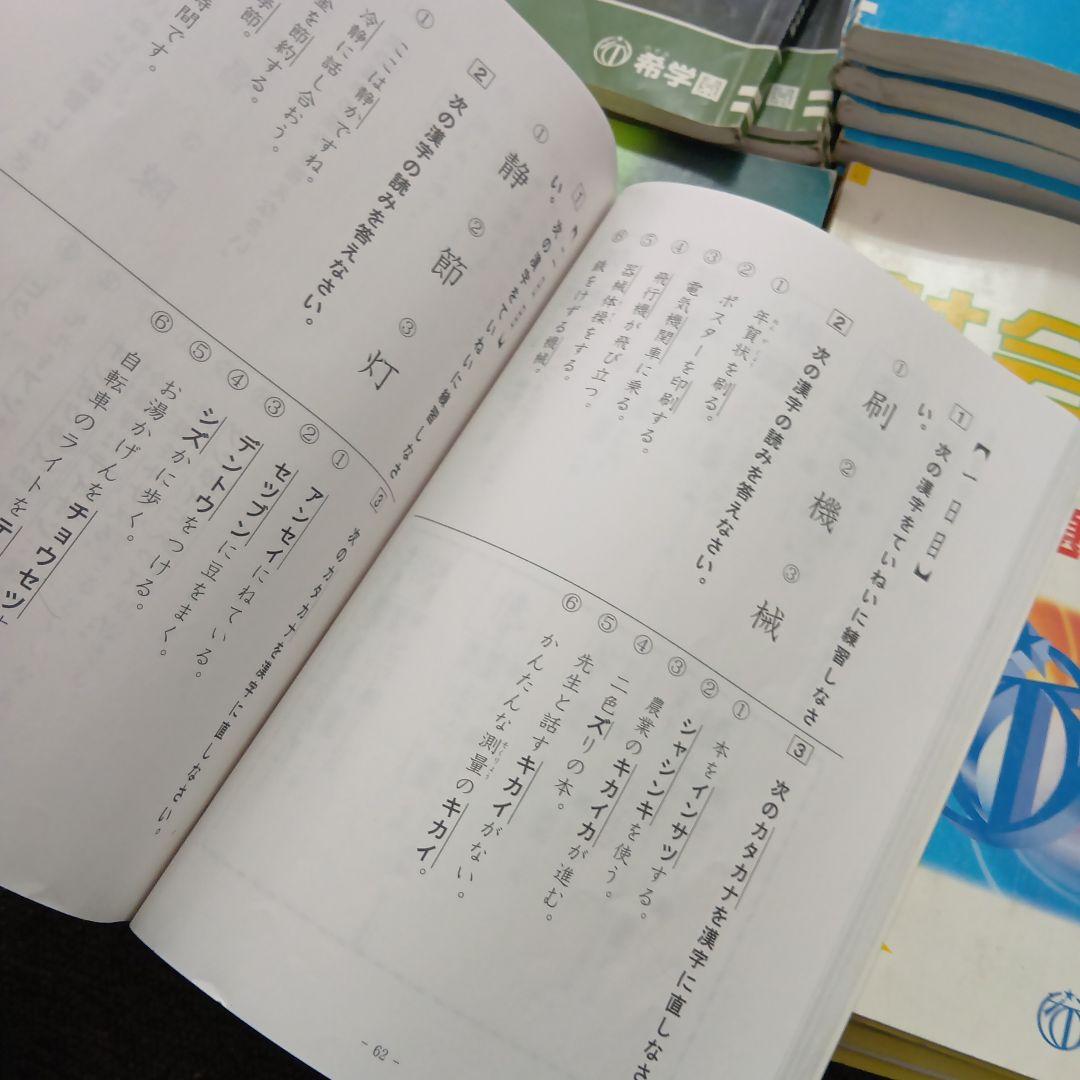 希学園
【 一 日 日 】
1 次の漢字をていねいに練習しなさ
い。
① 刷 ② 機 ③ 械
2 次の漢字の読みを答えなさい。
① 年賀状を刷る。
② ポスターを印刷する。
③ 電気機関車に乗る。
④ 飛行機が飛び立つ。
⑤ 器械体操をする。
⑥ 鉄をけずる機械。
3 次のカタカナを漢字に直しなさ
① 本をインサツする。
② シャシンキを使う。
③ 農業のキカイカが進む。
④ 二色ズりの本。
⑤ 先生と話すキカイがない。
⑥ かんたんな測量のキカイ。
そくりょう
- 62 -
1 次の漢字をていねいに練習しなさ
い。
① 静 ② 節 ③ 灯
2 次の漢字の読みを答えなさい。
① ここは静かですね。
冷静に話し合おう。
金を節約する。
節。
時間です。
3 次のカタカナを漢字に直しなさい。
① アンセイにねている。
② セツブンに豆をまく。
③ デントウをつける。
④ シズかに歩く。
⑤ お湯かげんをチョウセツ
⑥ 自転車のライトをテ